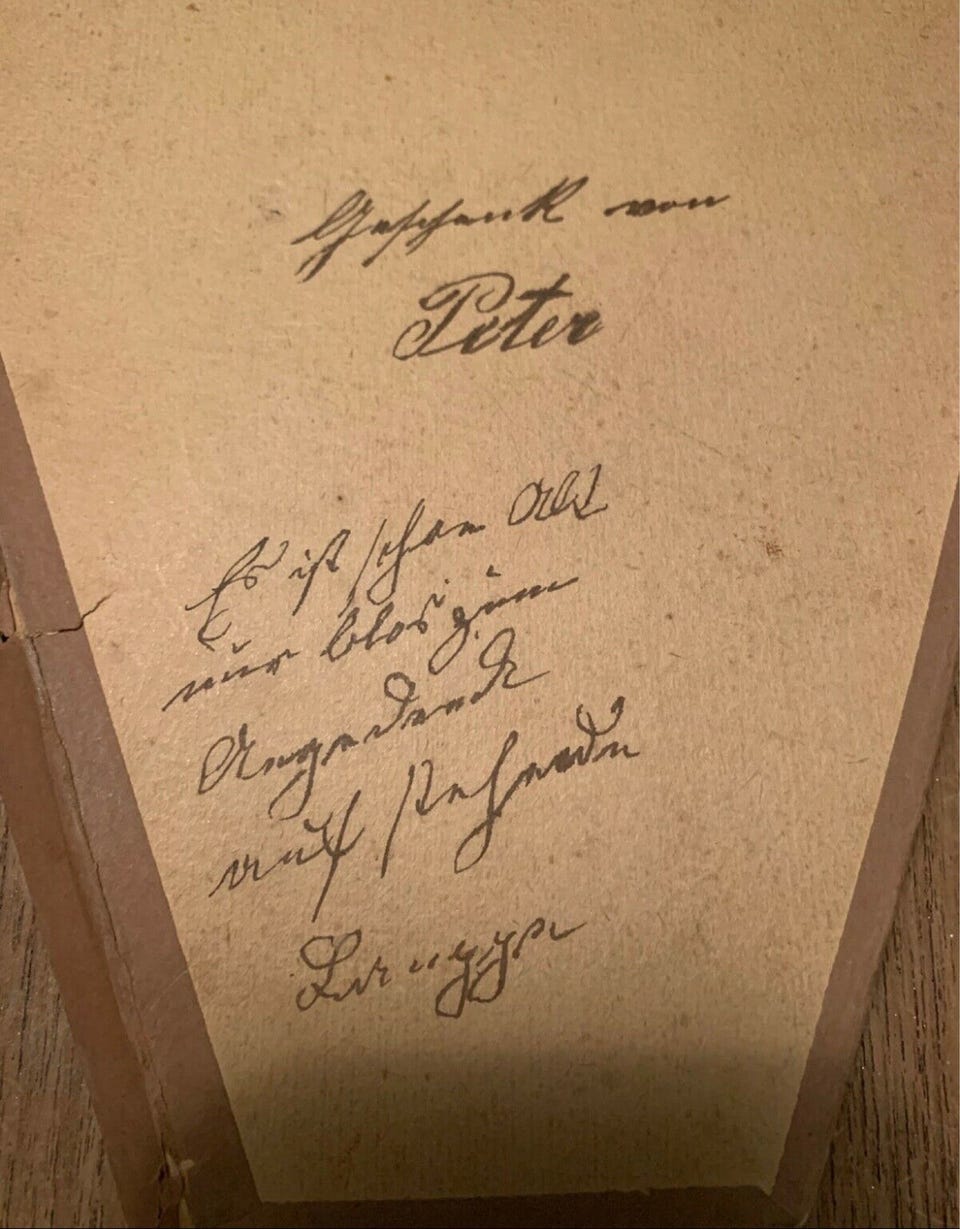 Geschenk von
Peter
Es ist schon Alt
nur blos zum
Angedenck
auf stehende